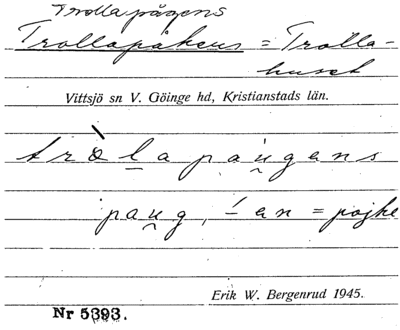 Trollapågens
Trollapåkens = Trolla-
huset
Vittsjö sn V. Göinge hd, Kristianstads län.
tròlapau̯gens
pau̯g, -́en = pojke
Erik W. Bergenrud 1945.
Nr 5393.